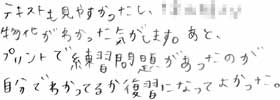 テキストも見やすかったし、
物化がわかった気がします。あと、
プリントで練習問題があったのが
自分でわかってるか復習になってよかった。